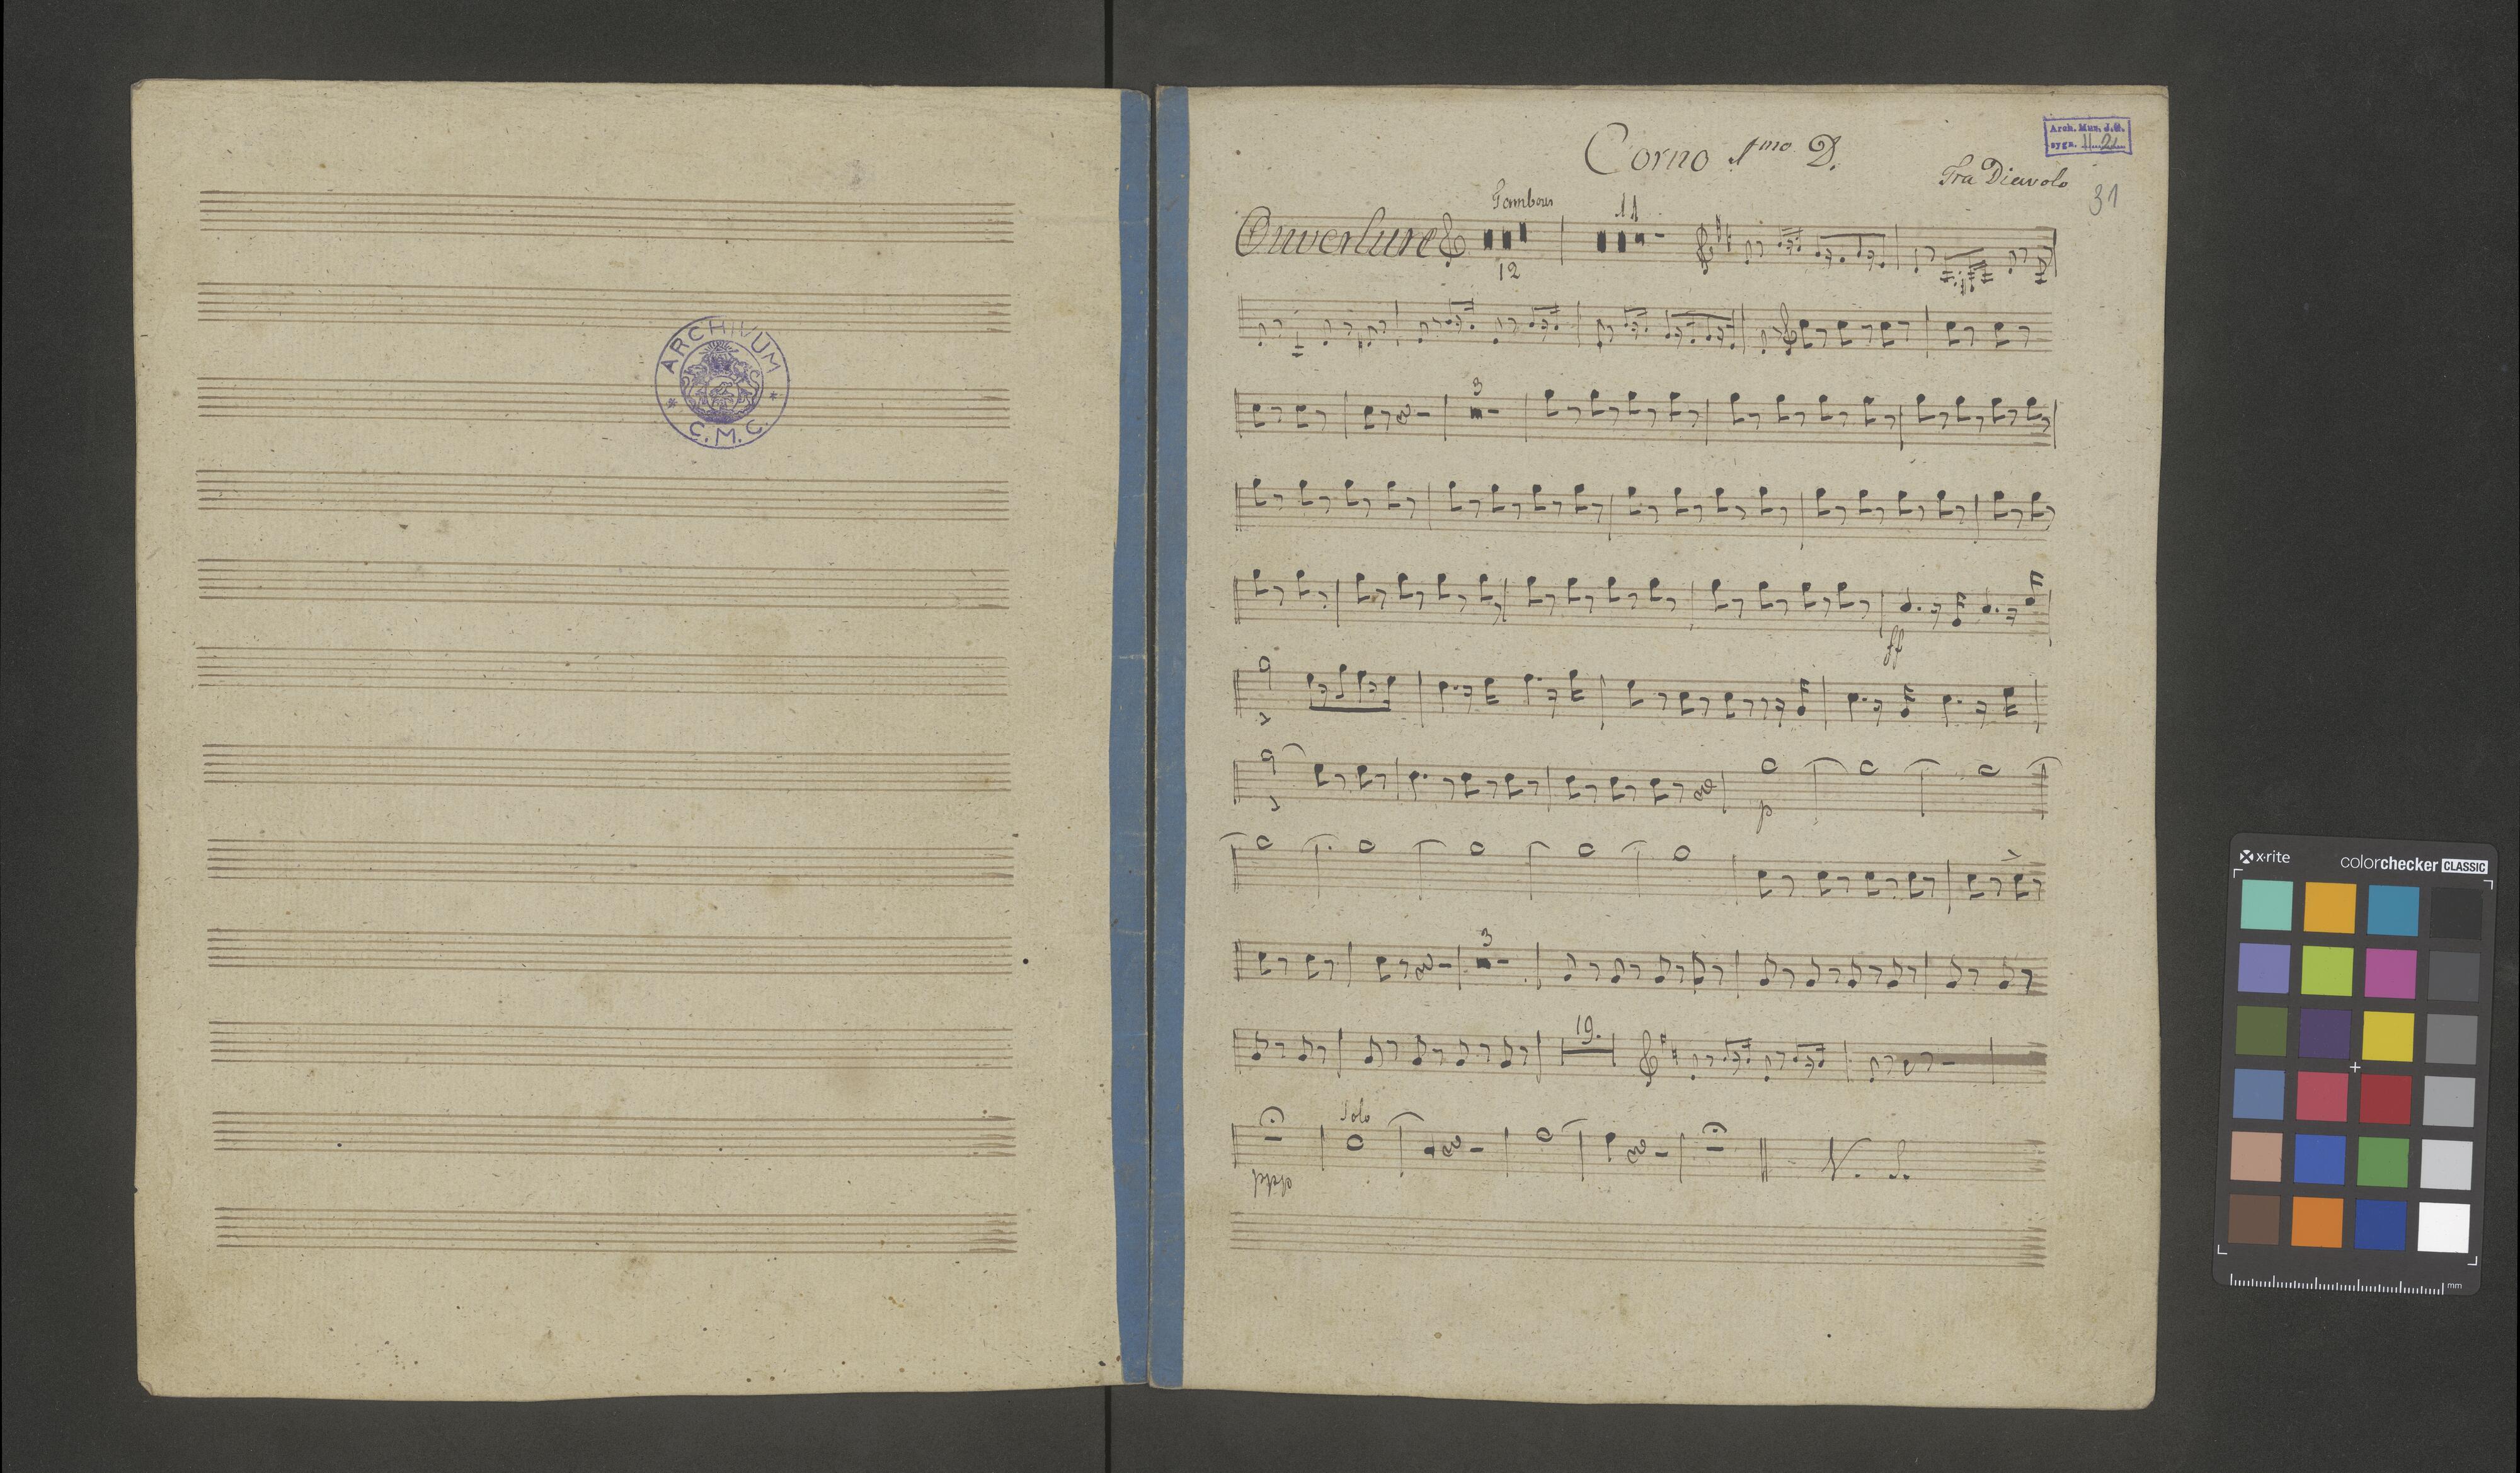 ARCHIVUM
* C. M. C. *
Corno 1mo D.
Arch. Mus. J.G.
sygn. II.21
Fra Diavolo
31
Tambour
11
Ouverture
12
3
ff
p
3
19.
Solo
ppp
V. S.
x-rite
colorchecker CLASSIC
mm